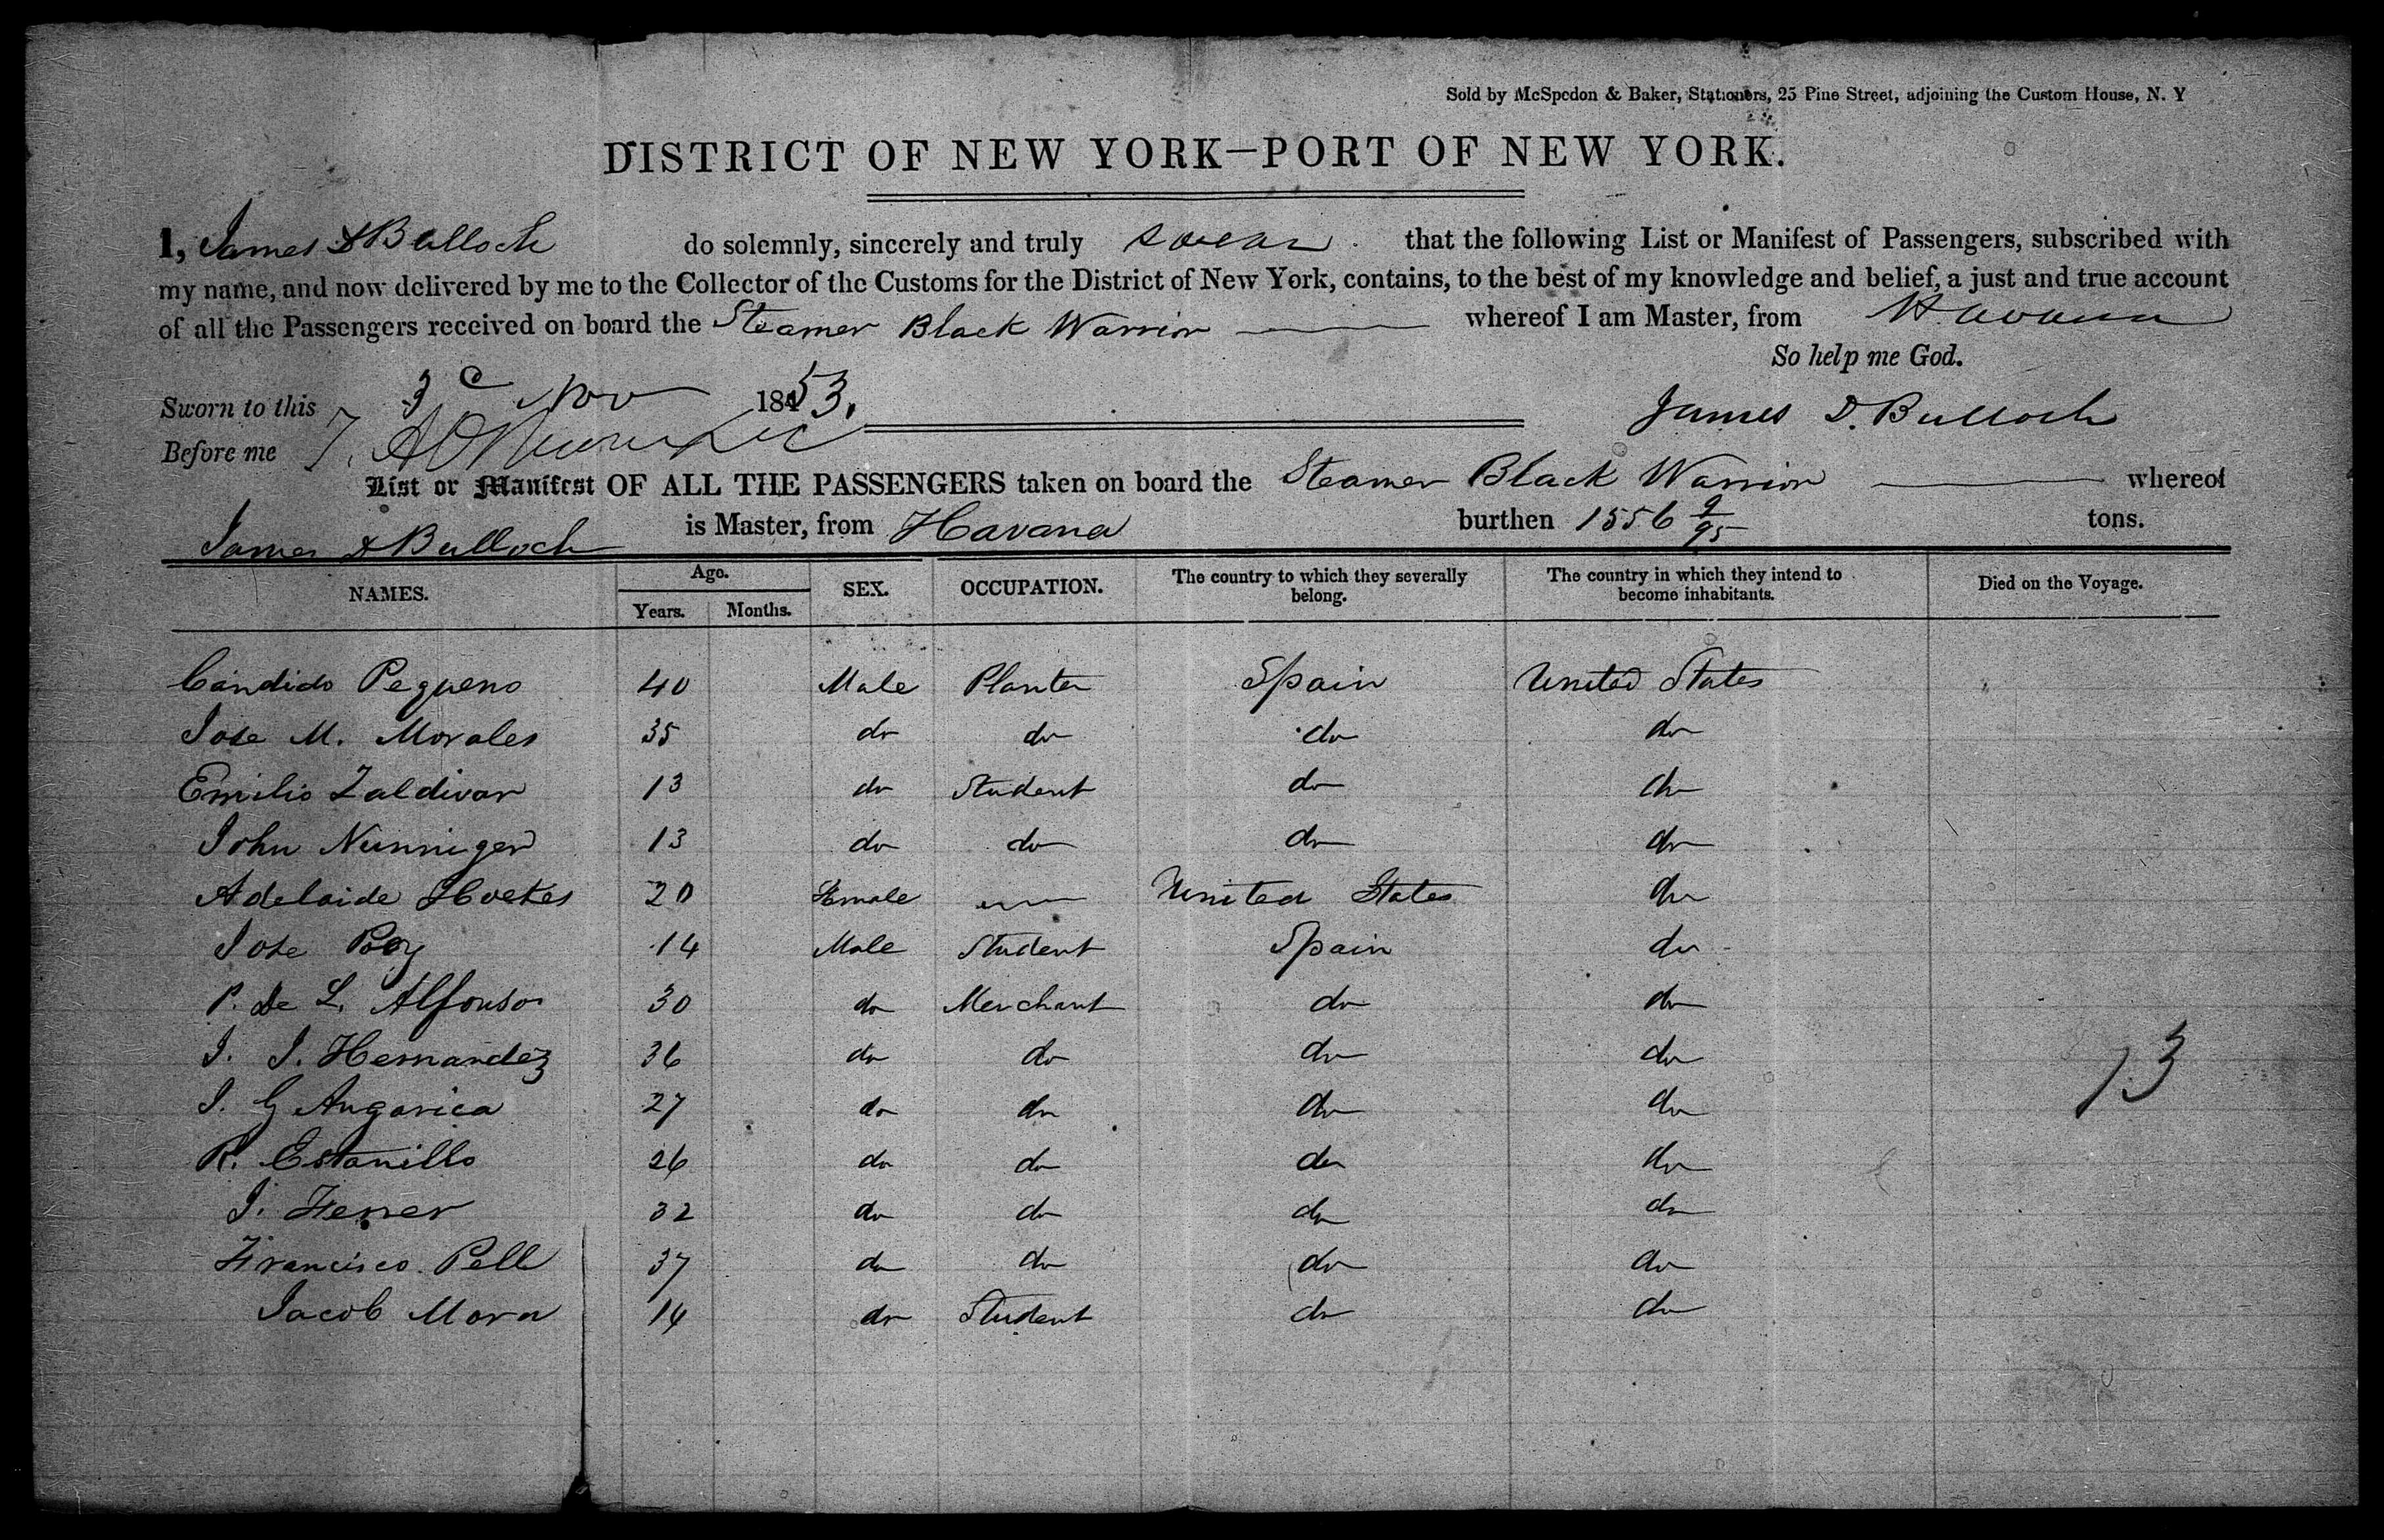 Sold by McSpedon & Baker, Stationers, 25 Pine Street, adjoining the Custom House, N. Y
DISTRICT OF NEW YORK—PORT OF NEW YORK.
I, James D Bulloch do solemnly, sincerely and truly swear that the following List or Manifest of Passengers, subscribed with
my name, and now delivered by me to the Collector of the Customs for the District of New York, contains, to the best of my knowledge and belief, a just and true account
of all the Passengers received on board the Steamer Black Warrior whereof I am Master, from Havana
So help me God.
Sworn to this 3 Nov 1853.
James D. Bulloch
Before me
List or Manifest OF ALL THE PASSENGERS taken on board the Steamer Black Warrior whereof
James D Bulloch is Master, from Havana burthen 1556 9/95 tons.
NAMES. Age. Years. Months. SEX. OCCUPATION. The country to which they severally belong. The country in which they intend to become inhabitants. Died on the Voyage.
Candido Pequeno 40 Male Planter Spain United States
Jose M. Morales 35 do do do do
Emilio Zaldivar 13 do Student do do
John Nunniger 13 do do do do
Adelaide 20 Female United States do
Jose Poey 14 Male Student Spain do
P. de L. Alfonso 30 do Merchant do do
J. J. Hernandez 36 do do do do
J. G Angarica 27 do do do do
R. Estanillo 26 do do do do
J. Ferrer 32 do do do do
Francisco Pell 37 do do do do
Jacob Mora 14 do Student do do
13